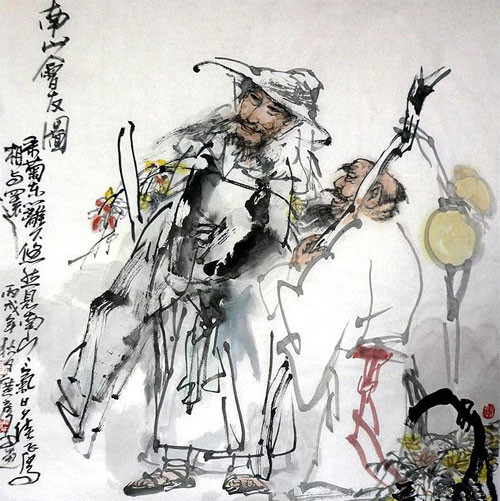 南山會友圖
采菊東籬下悠然見南山〻氣日夕佳飛鳥
相与還 丙戌年秋月